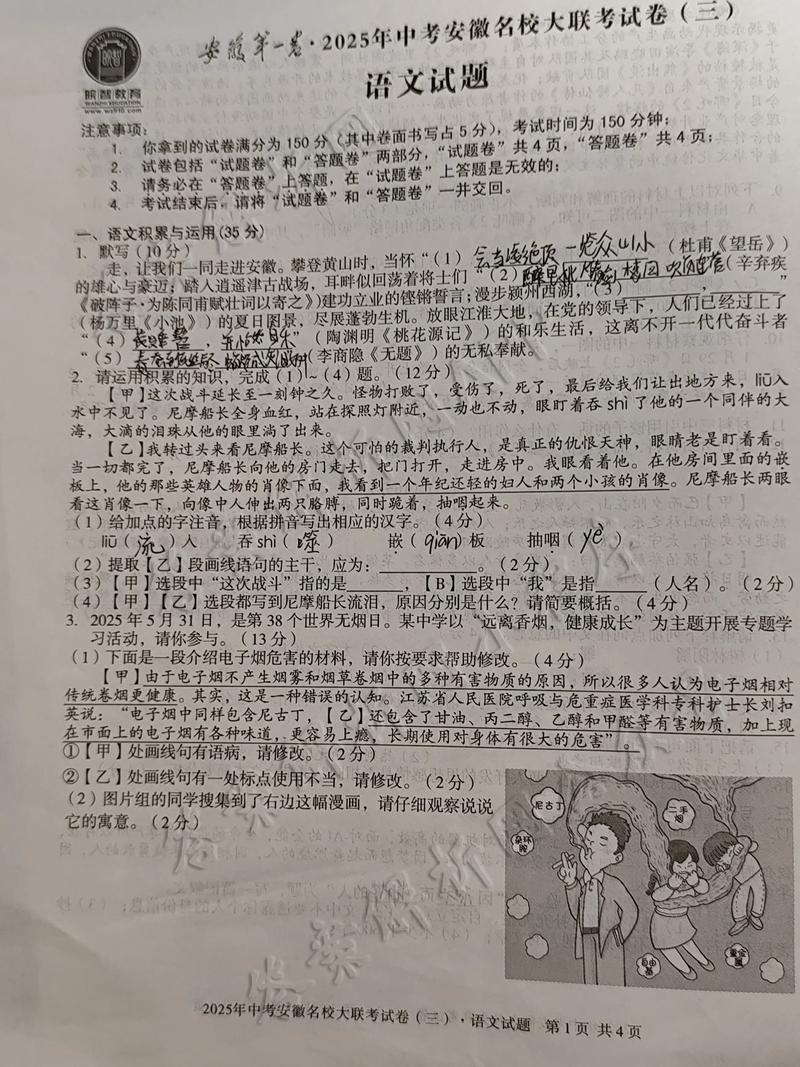 皖智教育
WANZHI EDUCATION
www.wz910.com
安徽第一卷·2025年中考安徽名校大联考试卷(三)
语文试题
注意事项:
1. 你拿到的试卷满分为150分(其中卷面书写占5分),考试时间为150分钟;
2. 试卷包括“试题卷”和“答题卷”两部分,“试题卷”共4页,“答题卷”共4页;
3. 请务必在“答题卷”上答题,在“试题卷”上答题是无效的;
4. 考试结束后,请将“试题卷”和“答题卷”一并交回。
一、语文积累与运用(35分)
1. 默写(10分)
走,让我们一同走进安徽。攀登黄山时,当怀“(1)会当凌绝顶 一览众山小(杜甫《望岳》)
的雄心与豪迈;踏入逍遥津古战场,耳畔似回荡着将士们“(2)醉里挑灯看剑 梦回吹角连营(辛弃疾
《破阵子·为陈同甫赋壮词以寄之》)建功立业的铿锵誓言;漫步颍州西湖,“(3) , ”
(杨万里《小池》)的夏日图景,尽展蓬勃生机。放眼江淮大地,在党的领导下,人们已经过上了
“(4) , ”(陶渊明《桃花源记》)的和乐生活,这离不开一代代奋斗者
“(5) (李商隐《无题》)的无私奉献。
2. 请运用积累的知识,完成(1)~(4)题。(12分)
【甲】这次战斗延长至一刻钟之久。怪物打败了,受伤了,死了,最后给我们让出地方来,liū入
水中不见了。尼摩船长全身血红,站在探照灯附近,一动也不动,眼盯着吞shì了他的一个同伴的大
海,大滴的泪珠从他的眼里淌了出来。
【乙】我转过头来看尼摩船长。这个可怕的裁判执行人,是真正的仇恨天神,眼睛老是盯着看。
当一切都完了,尼摩船长向他的房门走去,把门打开,走进房中。我眼看着他。在他房间里面的嵌
板上,他的那些英雄人物的肖像下面,我看到一个年纪还轻的妇人和两个小孩的肖像。尼摩船长两眼
看这肖像一下,向像中人伸出两只胳膊,同时跪着,抽咽起来。
(1)给加点的字注音,根据拼音写出相应的汉字。(4分)
liū(流)入 吞shì(噬) 嵌(qiàn)板 抽咽(yè)
(2)提取【乙】段画线语句的主干,应为: 。(2分)
(3)【甲】选段中“这次战斗”指的是 ,【B】选段中“我”是指 (人名)。(2分)
(4)【甲】【乙】选段都写到尼摩船长流泪,原因分别是什么?请简要概括。(4分)
3. 2025年5月31日,是第38个世界无烟日。某中学以“远离香烟,健康成长”为主题开展专题学
习活动,请你参与。(13分)
(1)下面是一段介绍电子烟危害的材料,请你按要求帮助修改。(4分)
【甲】由于电子烟不产生烟雾和烟草卷烟中的多种有害物质的原因,所以很多人认为电子烟相对
传统卷烟更健康。其实,这是一种错误的认知。江苏省人民医院呼吸与危重症医学科专科护士长刘扣
英说:“电子烟中同样包含尼古丁,【乙】还包含了甘油、丙二醇、乙醇和甲醛等有害物质,加上现
在市面上的电子烟有各种味道,更容易上瘾,长期使用对身体有很大的危害”。
①【甲】处画线句有语病,请修改。(2分)
②【乙】处画线句有一处标点使用不当,请修改。(2分)
(2)图片组的同学搜集到了右边这幅漫画,请仔细观察说说
它的寓意。(2分)
尼古丁
二手烟
杂环胺
自由基
重金属
2025年中考安徽名校大联考试卷(三)·语文试题 第1页 共4页